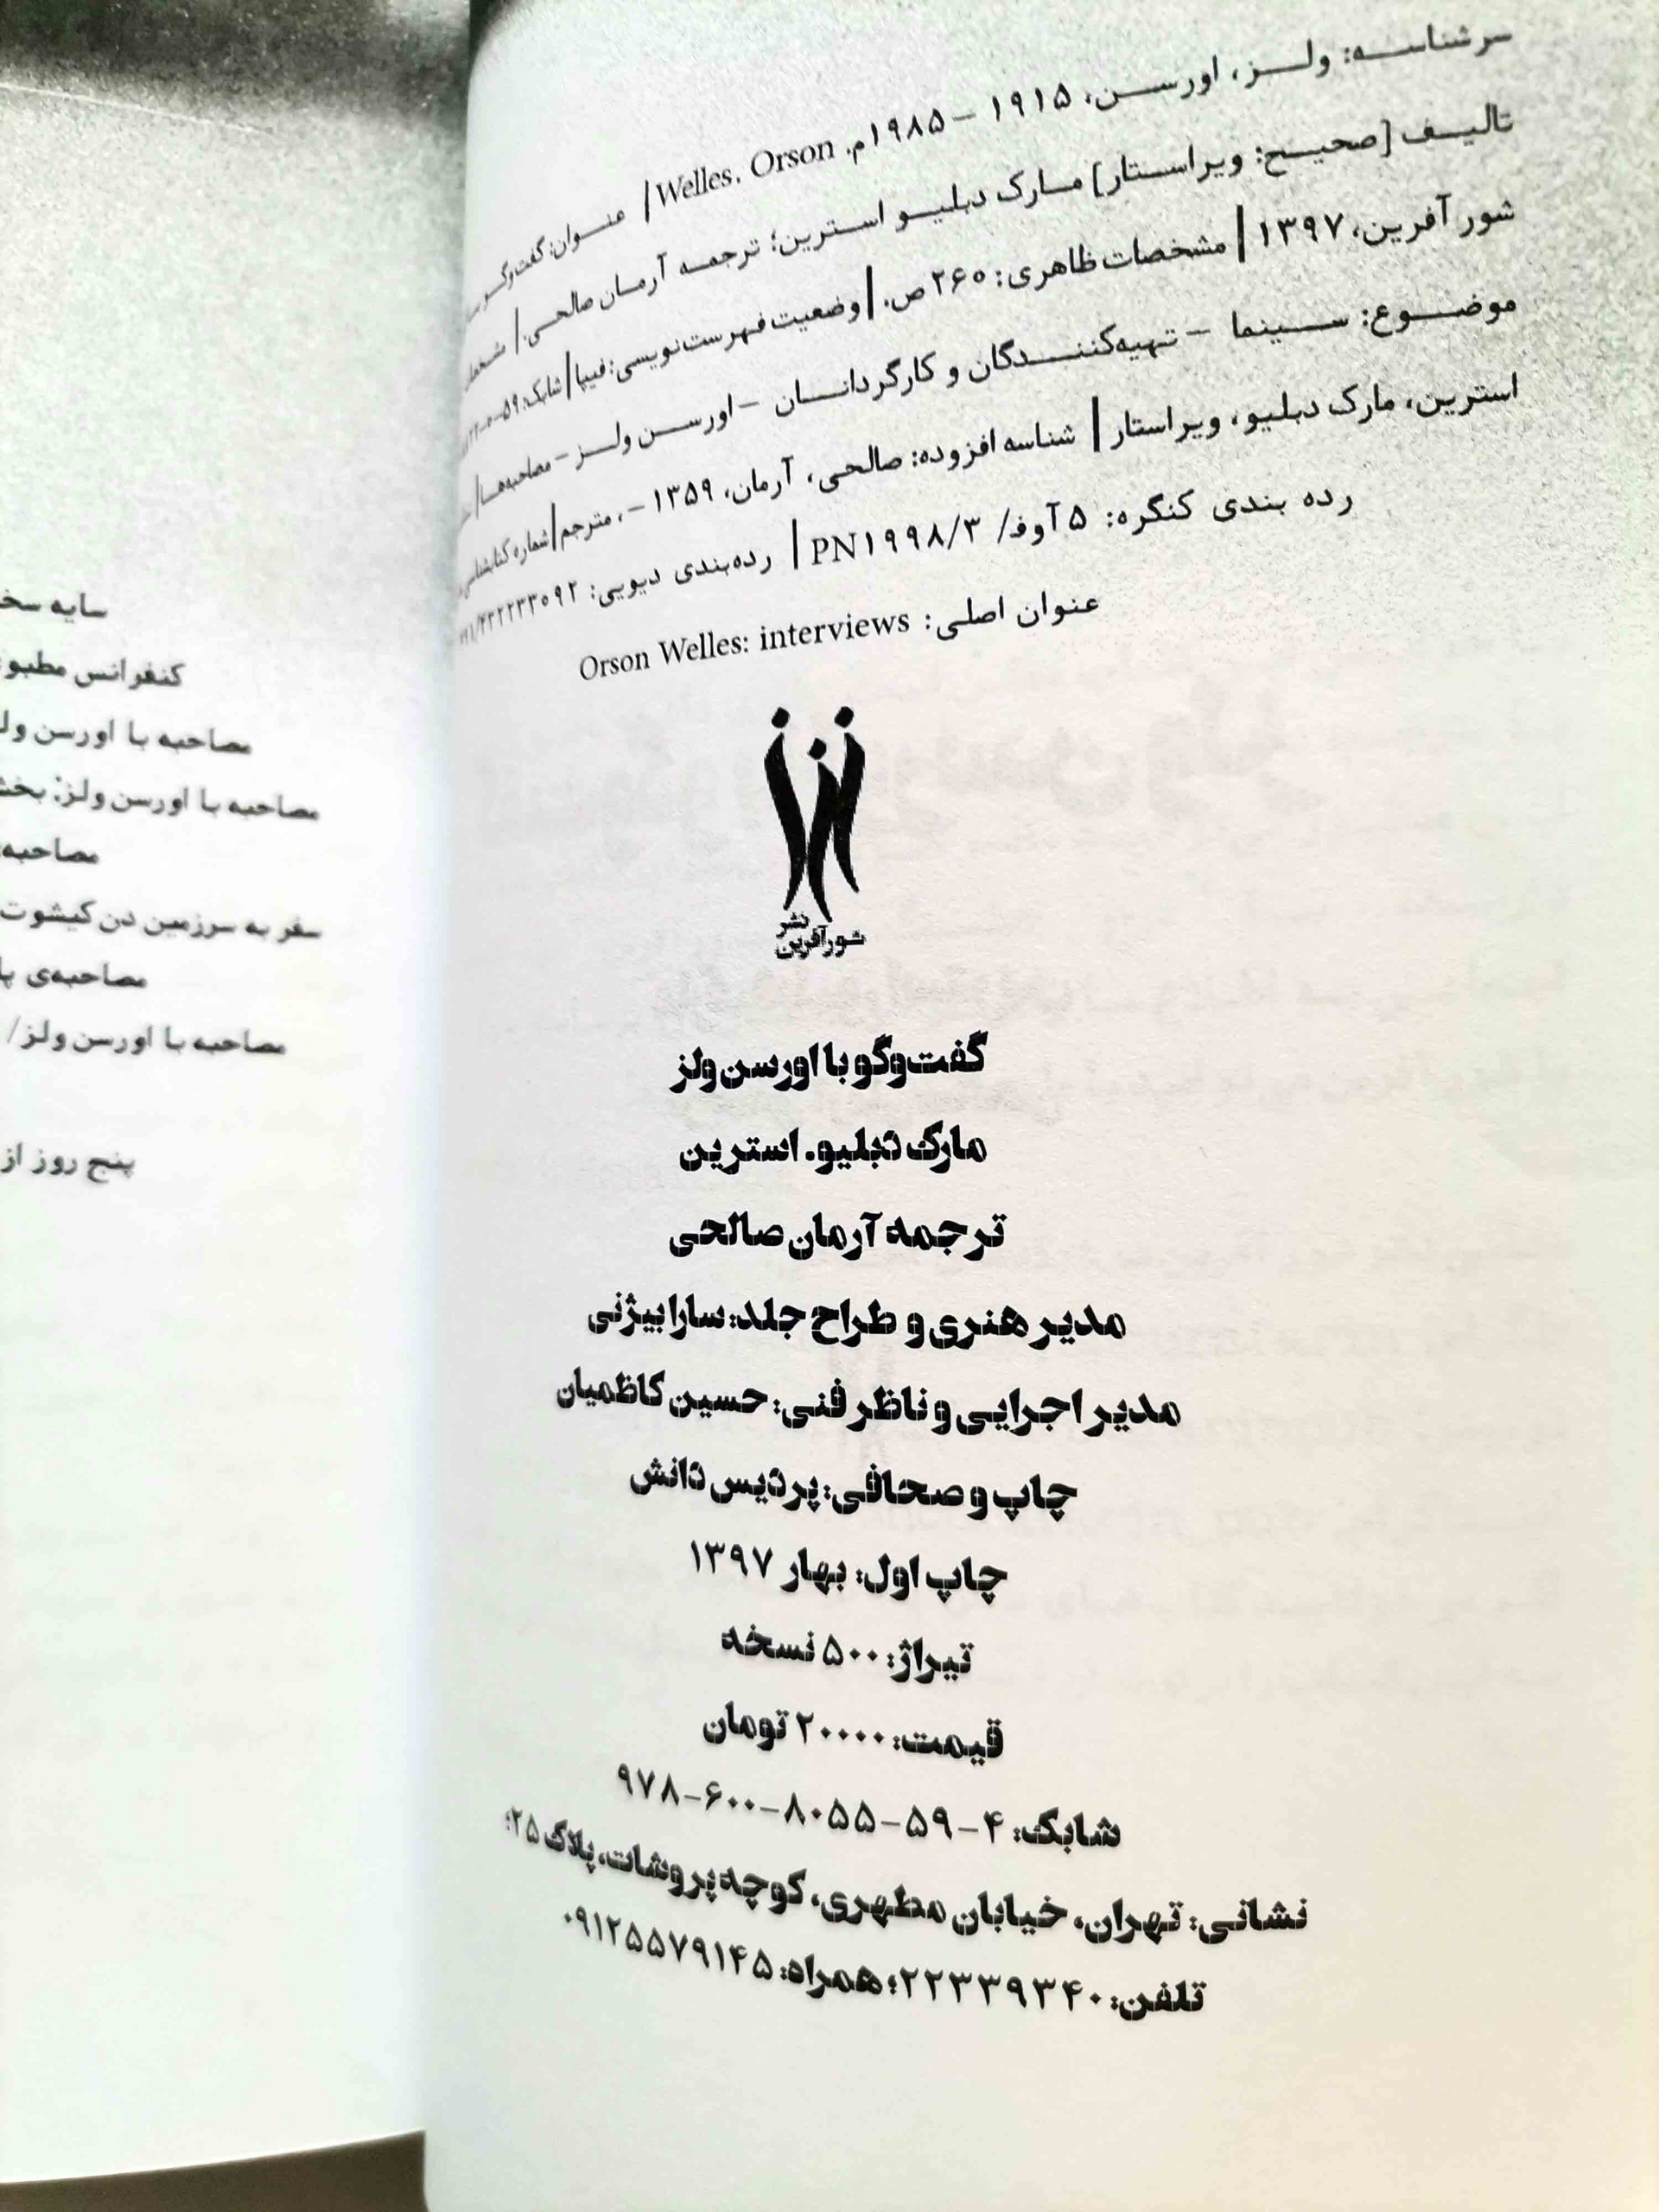 سرشناسه: ولز، اورسن، ۱۹۱۵ – ۱۹۸۵م. Welles, Orson | عنوان: گفت‌وگو
تالیف [صحیح: ویراستار] مارک دبلیو استرین؛ ترجمه آرمان صالحی. |
شورآفرین، ۱۳۹۷ | مشخصات ظاهری: ۲۶۰ ص. | وضعیت فهرست‌نویسی: فیپا | شابک:
موضوع: سینما – تهیه‌کنندگان و کارگردانان – اورسن ولز – مصاحبه‌ها |
استرین، مارک دبلیو، ویراستار | شناسه افزوده: صالحی، آرمان، ۱۳۵۹ –، مترجم | شماره کتابشناسی
رده بندی کنگره: ۵آو۹/ PN۱۹۹۸/۳ | رده‌بندی دیویی:
عنوان اصلی: Orson Welles: interviews
نشر
شورآفرین
گفت‌وگو با اورسن ولز
مارک دبلیو. استرین
ترجمه آرمان صالحی
مدیر هنری و طراح جلد: سارا بیژنی
مدیر اجرایی و ناظر فنی: حسین کاظمیان
چاپ و صحافی: پردیس دانش
چاپ اول: بهار ۱۳۹۷
تیراژ: ۵۰۰ نسخه
قیمت: ۲۰۰۰۰ تومان
شابک: ۴–۵۹–۸۰۵۵–۶۰۰–۹۷۸
نشانی: تهران، خیابان مطهری، کوچه پروشات، پلاک ۲۵؛
تلفن: ۲۲۳۳۹۳۴۰؛ همراه: ۰۹۱۲۵۵۷۹۱۴۵
سایه
کنفرانس
مصاحبه با اورسن
مصاحبه با اورسن ولز:
مصاحبه
سفر به سرزمین دن کیشوت
مصاحبه‌ی
مصاحبه با اورسن ولز/
پنج روز از